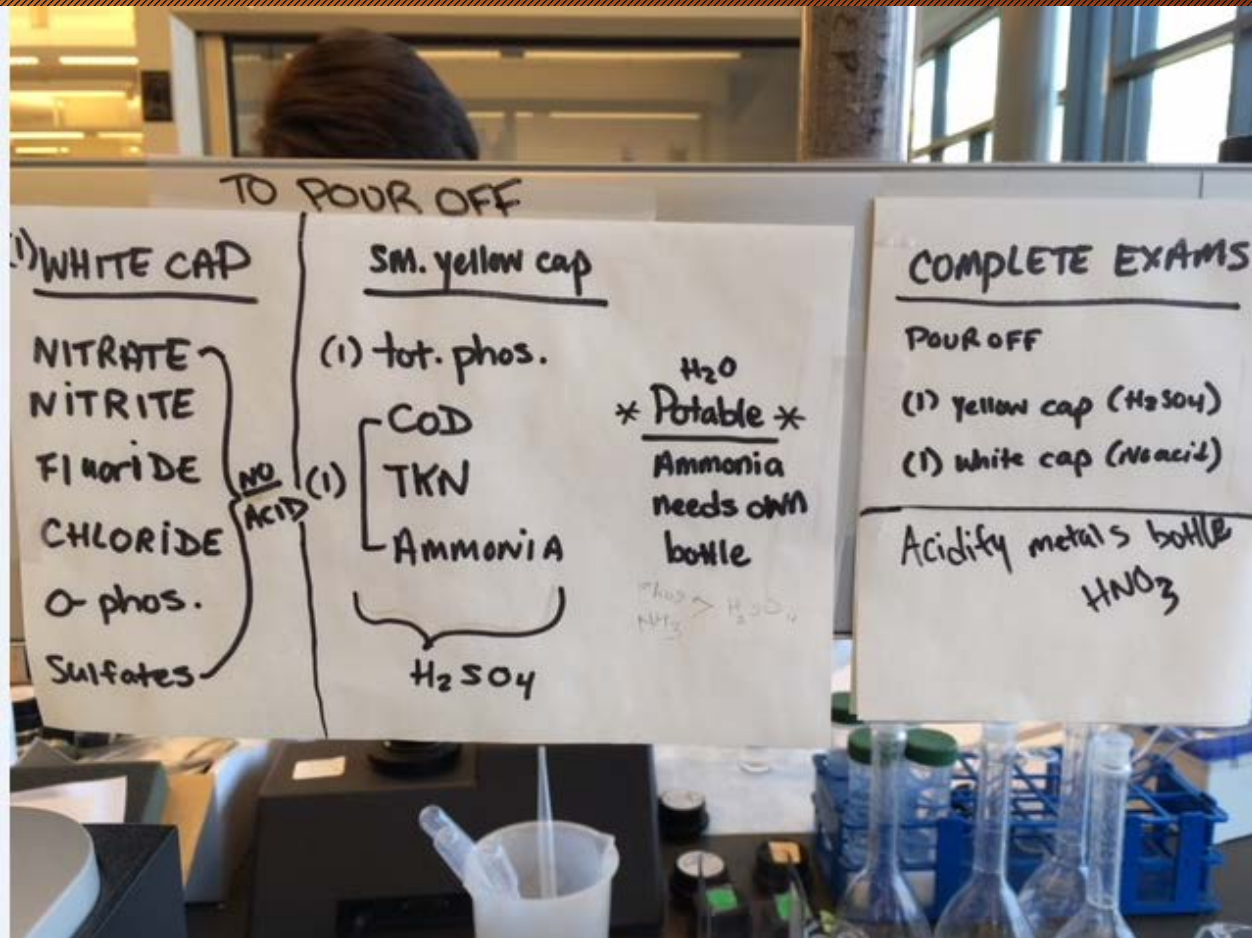 TO POUR OFF
(1) WHITE CAP
NITRATE
NITRITE
FluoriDE
CHLORIDE
O-phos.
Sulfates
NO
ACID
SM. yellow cap
(1) tot. phos.
(1)
COD
TKN
AMMONiA
H₂SO₄
H₂O
* Potable *
Ammonia
needs own
bottle
Phos
NH₃ > H₂SO₄
COMPLETE EXAMS
POUR OFF
(1) yellow cap (H₂SO₄)
(1) white cap (No acid)
Acidify metals bottle
HNO₃